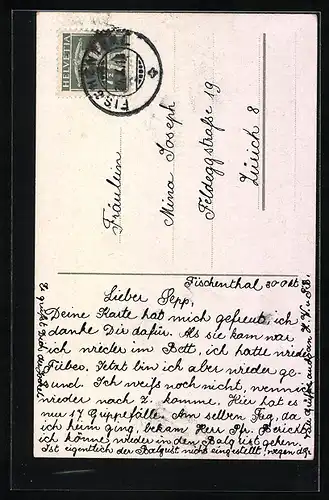 HELVETIA
FISCHENTHAL
Fräulein
Mina Joseph
Feldeggstraße 19
Zürich 8
Fischenthal 30 Okt.
Lieber Sepp,
Deine Karte hat mich gefreut, ich
danke Dir dafür. Als sie kam war
ich wieder im Bett, ich hatte wieder
Fieber. Jetzt bin ich aber wieder ge-
sund. Ich weiß noch nicht, wenn ich
wieder nach Z. komme. Hier hat es
nur 17 Grippefälle. Am selben Tag, da
ich heim ging, bekam Herr Pfr. Bericht,
ich könne wieder in den Balgrist gehen.
Ist eigentlich der Balgrist nicht eingestellt, wegen der
Viele Grüße
Es grüßt Dich